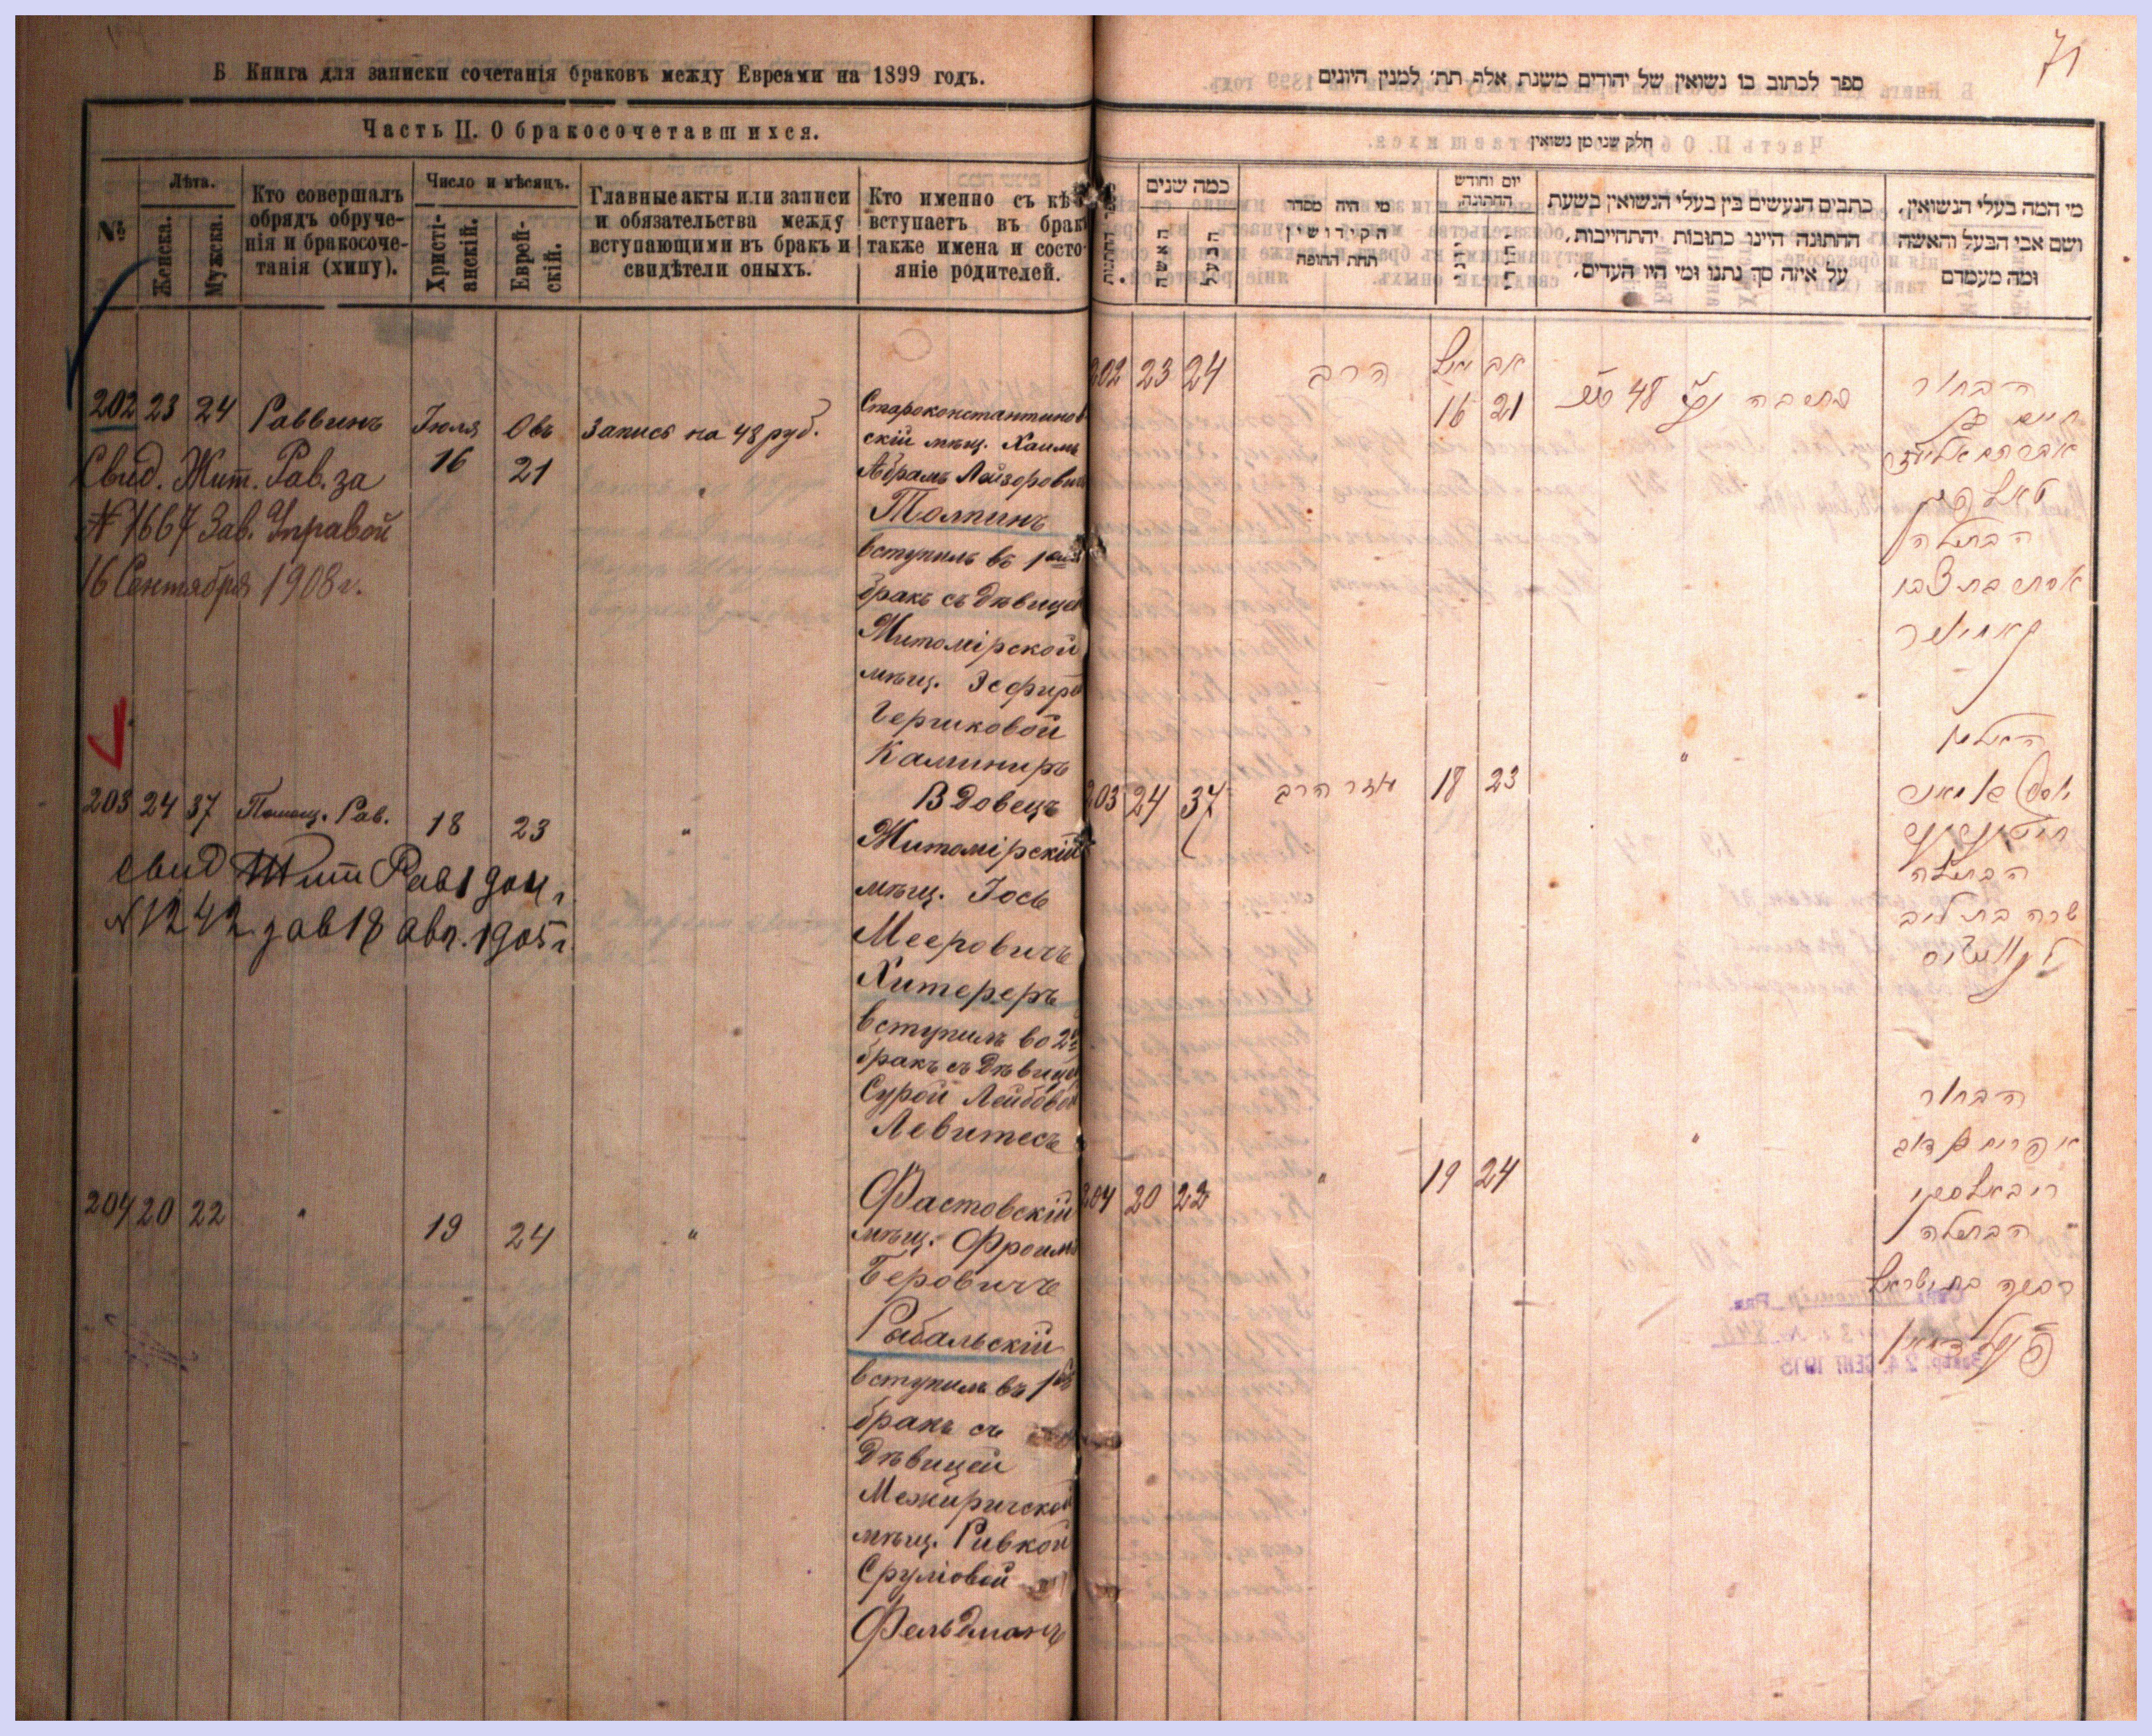 Б Книга для записки сочетанія браковъ между Евреями на 1899 годъ.
Часть II. О бракосочетавшихся.
№
Лѣта.
Женска.
Мужска.
Кто совершалъ
обрядъ обруче-
нія и бракосоче-
танія (хипу).
Число и мѣсяцъ.
Христі-
анскій.
Еврей-
скій.
Главные акты или записи
и обязательства между
вступающими въ бракъ и
свидѣтели оныхъ.
Кто именно съ кѣ
вступаетъ въ брак
также имена и состо-
яніе родителей.
202 23 24 Раввинъ Іюля 16 Овъ 21 Запись на 48 руб.
Староконстантинов
скій мѣщ. Хаимъ
Абрамъ Лейзорович
Толпинъ
вступилъ въ 1
бракъ съ дѣвицей
Житомірской
мѣщ. Эсфирь
Гершковой
Каминиръ
Свид. Жит. Рав. за
№ 1667 Зав. Управой
16 Сентября 1908 г.
203 24 37 Помощ. Рав. 18 23 "
Вдовецъ
Житомірскій
мѣщ. Іось
Мееровичъ
Хитереръ
вступилъ во 2й
бракъ съ дѣвицей
Сурой Лейбовой
Левитесъ
Свид Жит Рав 1904 г.
№ 1242 зав 18 авг. 1905 г.
204 20 22 " 19 24 "
Фастовскій
мѣщ. Фроимъ
Беровичъ
Рыбальскій
вступилъ въ 1й
бракъ съ
дѣвицей
Межиричской
мѣщ. Ривкой
Сруліовой
Фельдманъ
71
ספר לכתוב בו נשואין של יהודים משנת אלף תת׳ למנין היונים
חלק שני מן נשואין
כמה שנים
האשה
הבעל
מי היה מסדר
הקידושין
תחת החופה
יום וחודש
החתונה
יוני
יהודי
כתבים הנעשים בין בעלי הנשואין בשעת
החתונה היינו כתובות יהתחייבות,
על איזה סך נתנו ומי היו העדים,
מי המה בעלי הנשואין,
ושם אבי הבעל והאשה
ומה מעמדם
202 23 24 הרב יולי 16 אב 21 כתובה 48
הבחור
חיים בן
אברהם אליעזר
טאלפין
הבתולה
אסתר בת צבי
קאמינער
203 24 37 עוזר הרב 18 23 "
האלמן
יוסף בן מאיר
חיטערער
הבתולה
שרה בת ליב
לעוויטיס
204 20 22 " 19 24 "
הבחור
אפרים בן דוב
ריבאלסקי
הבתולה
רבקה בת ישראל
פעלדמאן